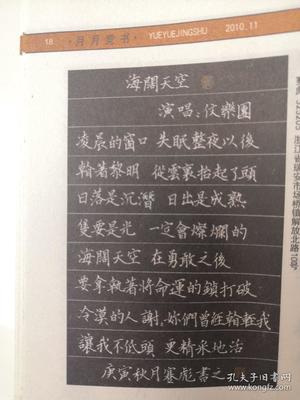 18 ·月月竞书· YUEYUEJINGSHU 2010.11
海闊天空
演唱:信樂團
凌晨的窗口 失眠整夜以後
看著黎明 從雲裏抬起了頭
日落是沉潛 日出是成熟
隻要是光 一定會燦爛的
海闊天空 在勇敢之後
要拿執著將命運的鎖打破
冷漠的人謝謝你們曾經看輕我
讓我不低頭 更精采地活
庚寅秋月蹇彪書之
浙江省瑞安市场桥镇解放北路109号
孔夫子旧书网